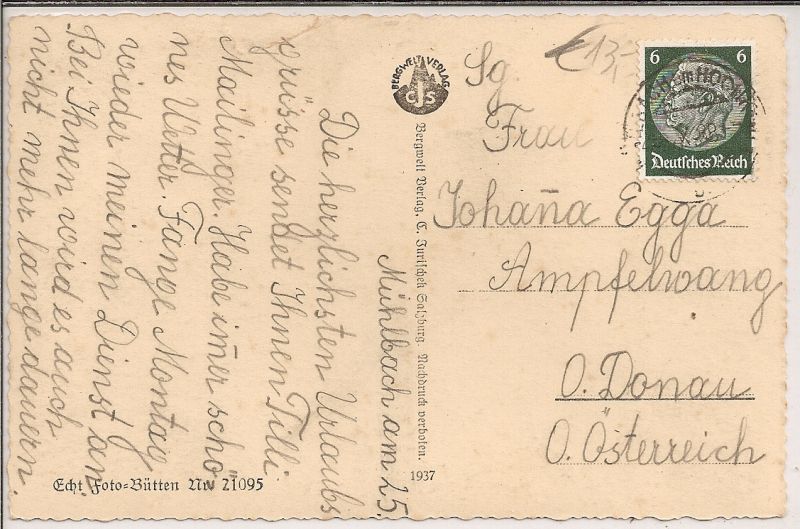 Mühlbach am 25.
Die herzlichsten Urlaubs
grüsse sendet Ihnen Tilli
Mailinger. Habe im̅er schö
nes Wetter. Fange Montag
wieder meinen Dienst an.
Bei Ihnen wird es auch
nicht mehr lange dauern.
Echt Foto-Bütten Nr. 21095
BERGWELT VERLAG
CJS
Bergwelt Verlag, C. Jurischek Salzburg. Nachdruck verboten.
1937
€ 13,-
6 6
Deutsches Reich
Sg.
Frau
Johan̅a Egga
Ampfelwang
O. Donau
O. Österreich